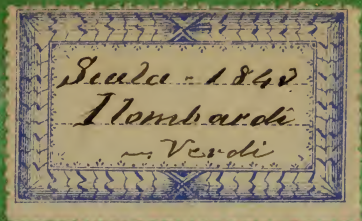 Scala - 1843
I Lombardi
Verdi